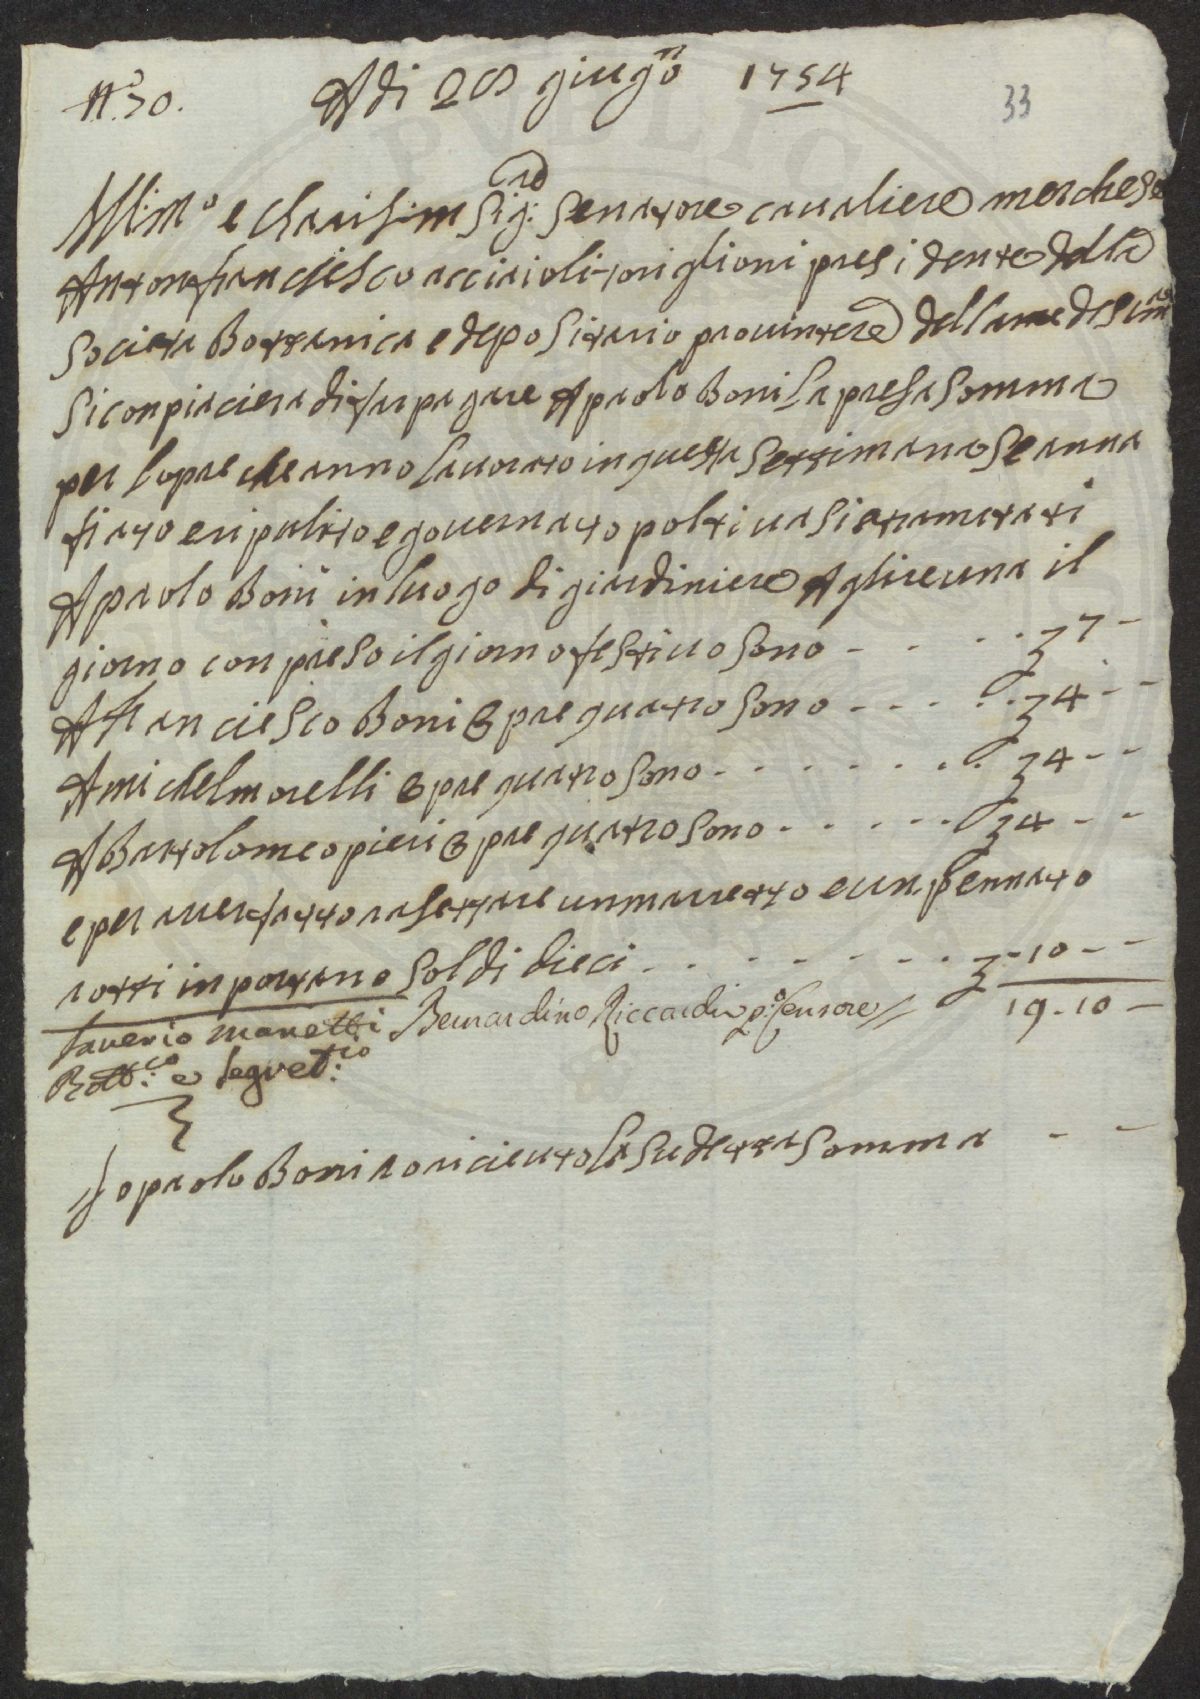 N.º 30. A di 28 giug.º 1754
33
Ill:mº e charisim Sig:re Senatore cavaliere marchese
Antonfranciesco acciaioli toriglioni presidente della
Societa Bottanica e depositario provintere della medesima
Si conpiaciera di far pagare A paolo Boni la presa somma
per lopre che anno lavorato in questa settimana Se anna
fiato e ripulito e governato poltivasi e tramutati
A paolo Boni in luogo di giardiniere A glire una il
giorno conpreso il giorno festivo sono - - - - 7 -
A Franciesco Boni Opre quatro sono - - - - - 4 - -
A michel morelli Opre quatro sono - - - - - - - 4 - -
A Bartolomeo pieri Opre quatro sono - - - - - 4 - -
e per aver fatto rasettare un marretto e un pennato
rotti in portano Soldi dieci - - - - - - - - 10 - -
Saverio Manetti Bernardino Riccardi p:º Censore 19 . 10 -
Bott:co e Segret:rio
Io paolo Boni o riceuto la sudetta somma - -